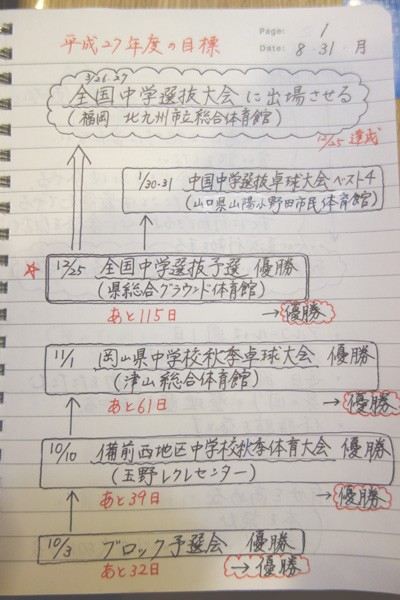 平成27年度の目標
Page: 1
Date: 8・31・月
3/26.27
全国中学選抜大会に出場させる
(福岡 北九州市立総合体育館)
12/25 達成
1/30・31 中国中学選抜卓球大会ベスト4
(山口県山陽小野田市民体育館)
☆ 12/25 全国中学選抜予選 優勝
(県総合グラウンド体育館)
あと115日 →優勝
11/1 岡山県中学校秋季卓球大会 優勝
(津山総合体育館)
あと61日 →優勝
10/10 備前西地区中学校秋季体育大会 優勝
(玉野レクレセンター)
あと39日 →優勝
10/3 ブロック予選会 優勝
あと32日 →優勝